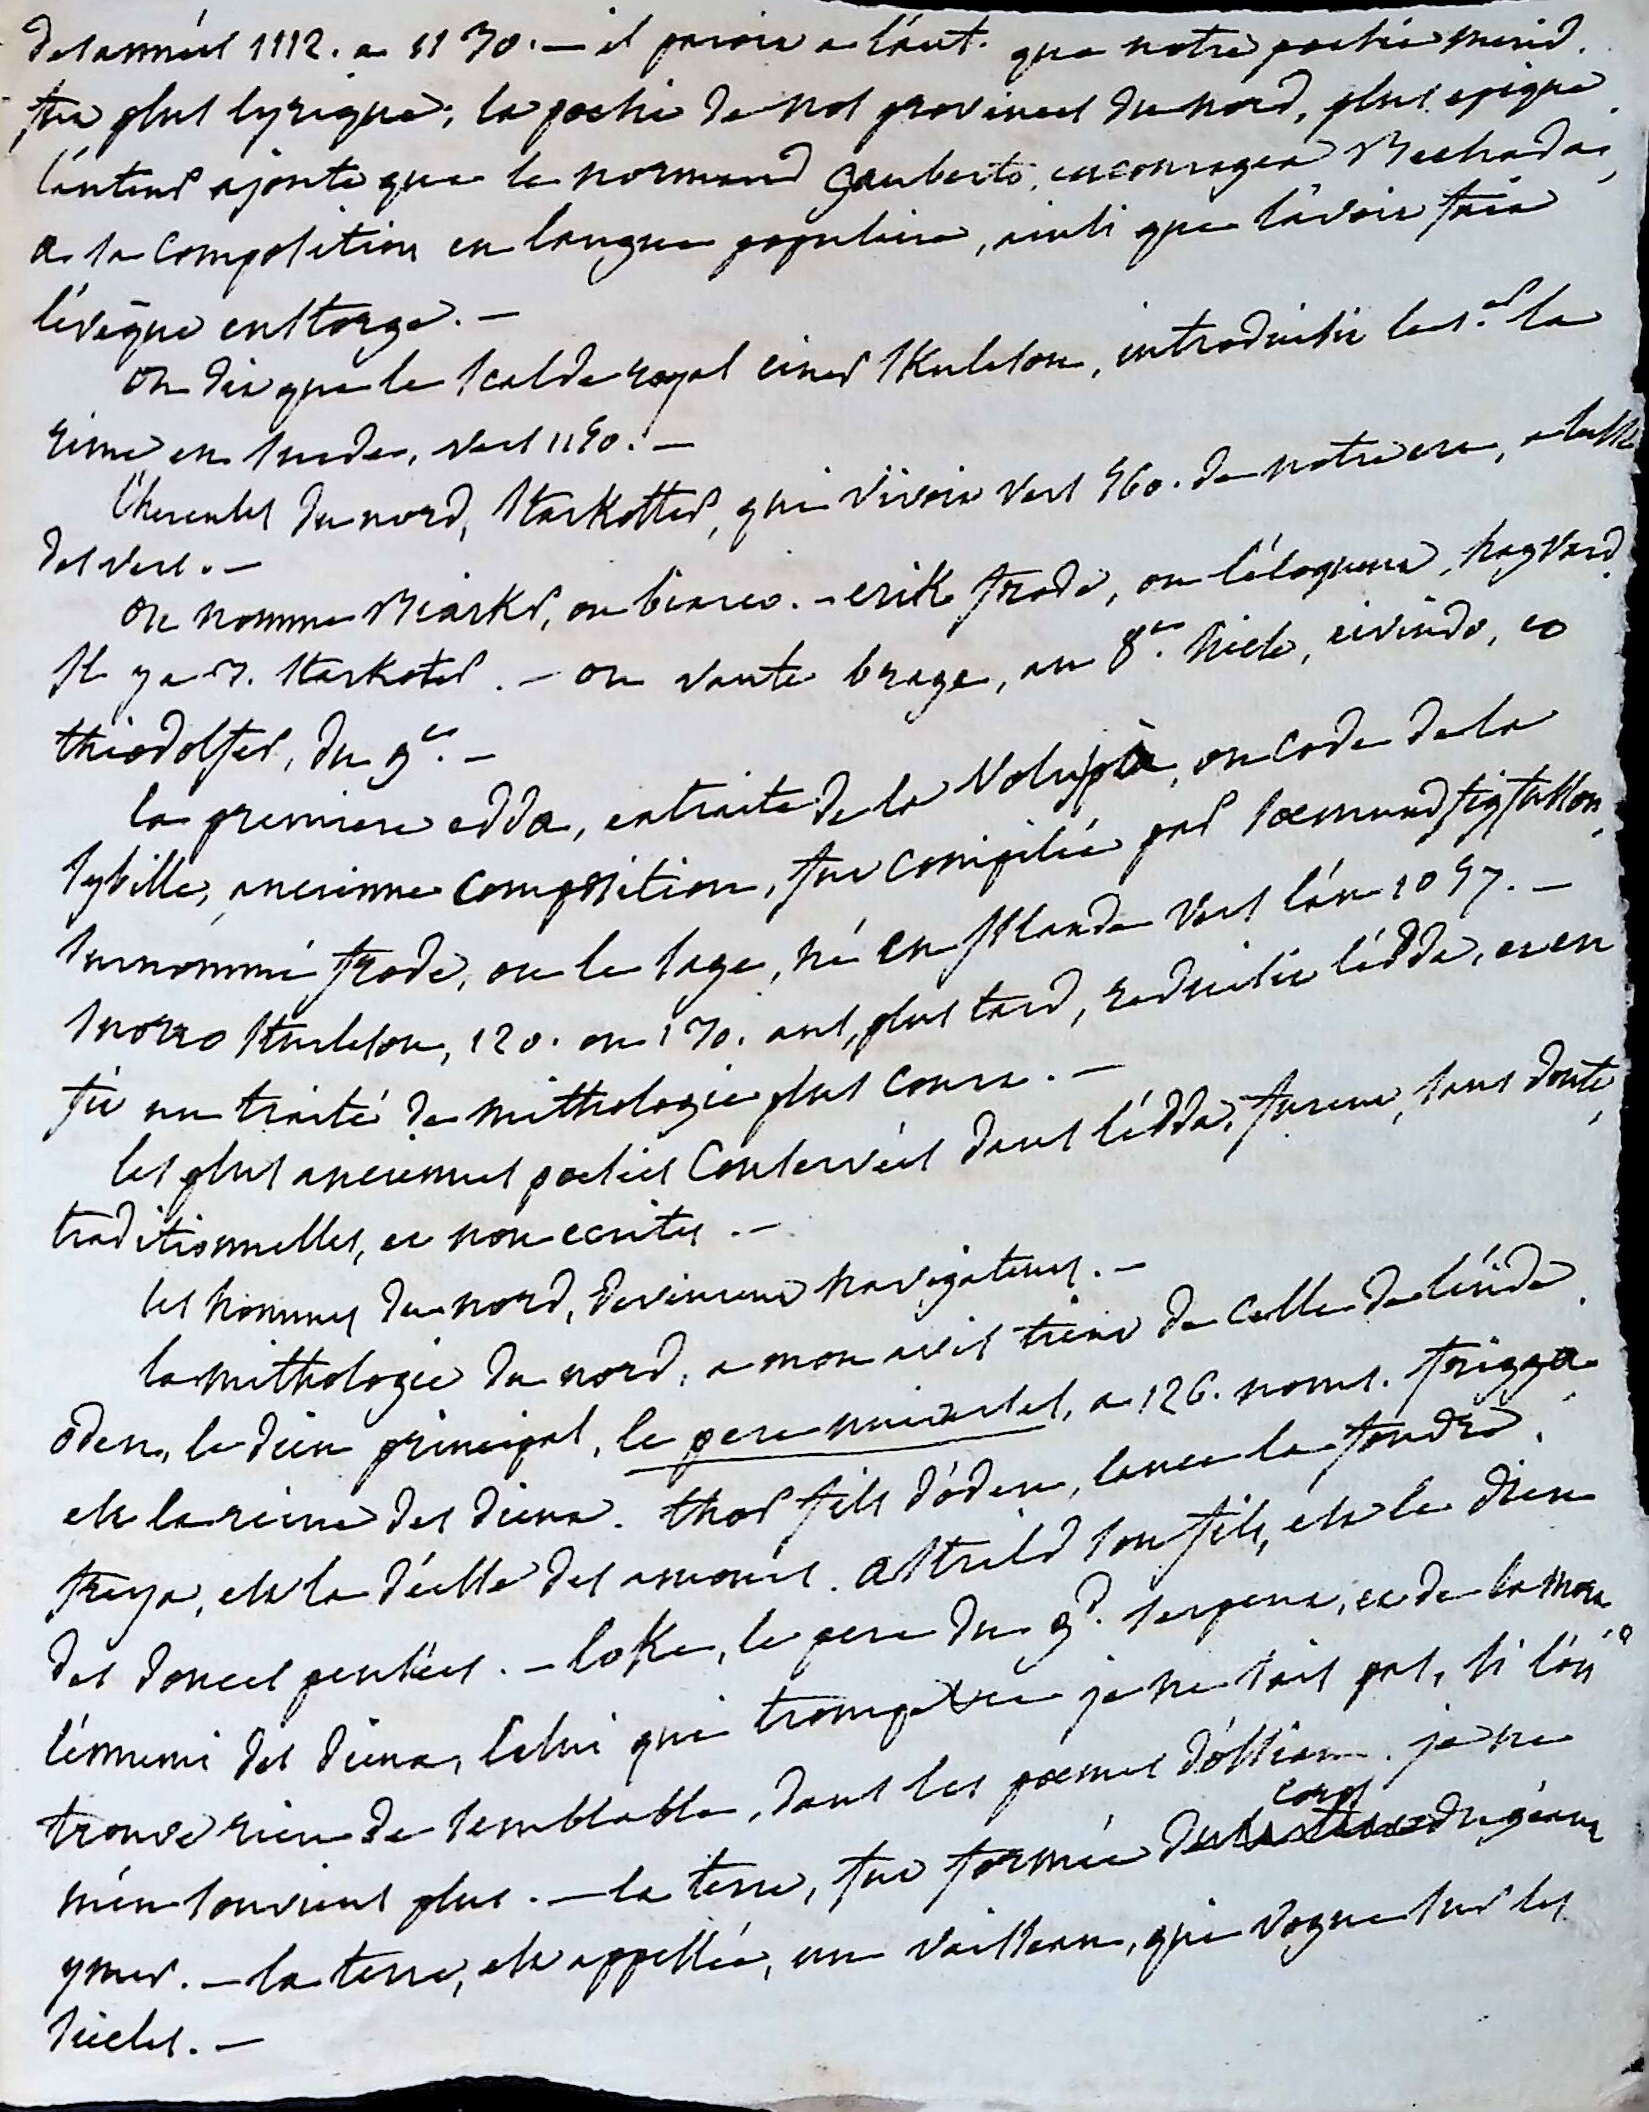 des années 1112. a 1130. — il paroit a l'aut. que notre poesie merid.
fut plus lyrique; la poesie de nos provinces du nord, plus epique.
l'auteur ajoute que le normand gauberto, encouragea Bechada,
a la composition en langue populaire, ainsi que l'avoit fait
l'évêque eustorge. —
on dit que le scalde royal einar skuleson, introduisit les.er la
rime en suede, vers 1150. —
l'hercules du nord, starkotter, qui vivoit vers 360. de notre ere, a laissé
des vers. —
on nomme Biarkr, ou biarco. — erik frode, ou l'éloquent, hagvard.
Il y a 3. starkoter. — on vante brage, au 8.e siecle, eivindo, et
thiodolfer, du 9.e —
la premiere edda, extraite de la Voluspa, ou code de la
sybille, ancienne composition, fut compilée par soemund sigfusson,
surnommé frode, ou le sage, né en Islande vers l'an 1057. —
snorro sturleson, 120. ou 130. ans, plus tard, reduisit l'édda, et en
fit un traité de mithologie plus court. —
les plus anciennes poesies conservées dans l'édda, furent, sans doute,
traditionnelles, et non ecrites. —
les hommes du nord, devinrent navigateurs. —
la mithologie du nord, a mon avis tient de celle de l'inde.
oden, le dieu principal, le pere universel, a 126. noms. frigga
est la reine des dieux. thor fils d'óden, lance la foudre.
freya, est la déesse des amours. astrild son fils, est le dieu
des douces pensées. — loke, le pere du gd. serpent, et de la mort
l'ennemi des dieux, celui qui trompe je ne sais pas, si l'on
trouve rien de semblable, dans les poemes d'óssian. je ne
m'en souviens plus. — la terre, fut formée du corps du géant
ymer. — la terre, est appellée, un vaisseau, qui vogue sur les
siecles. —